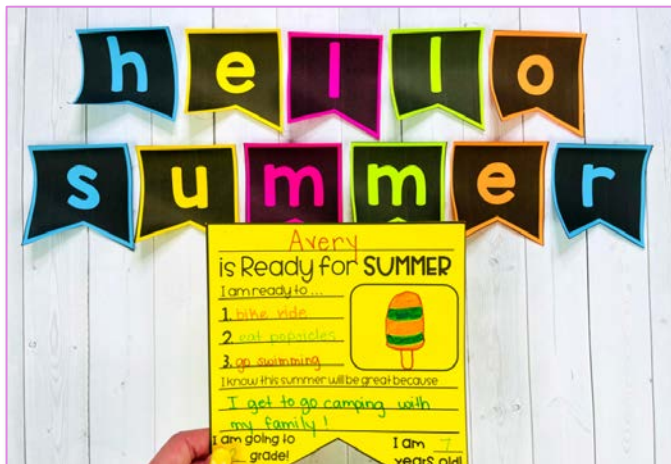 hello
summer
Avery
is Ready for SUMMER
I am ready to...
1. bike ride
2. eat popsicles
3. go swimming
I know this summer will be great because
I get to go camping with
my family!
I am going to
2 grade!
I am 7
years old!